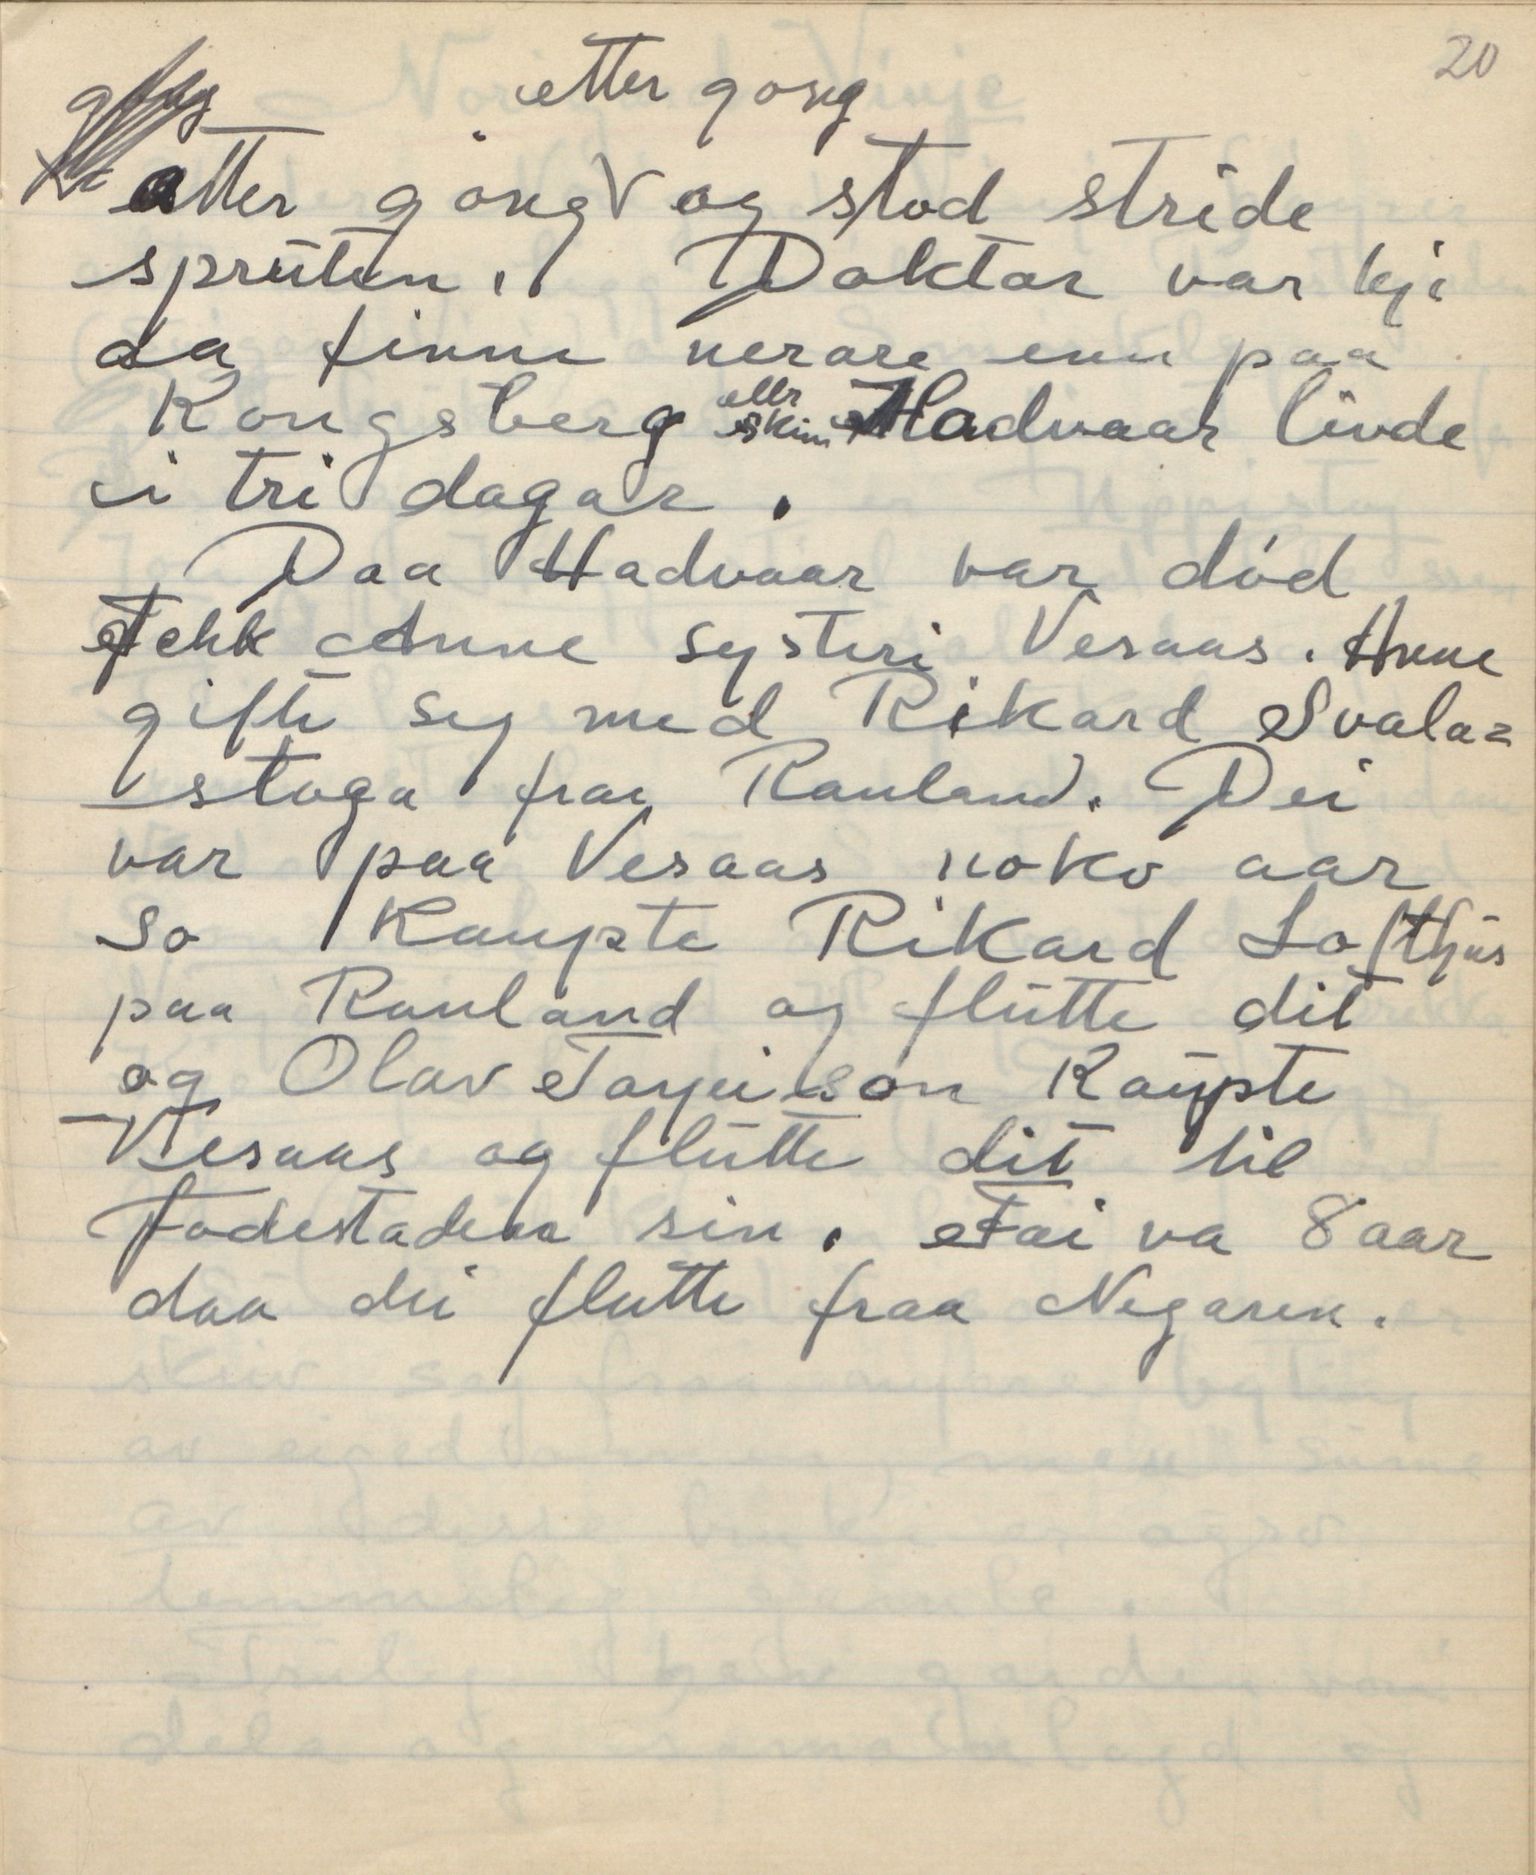 20
etter gong
etter gong og stod stride
sprúten. Doktar var kji
da finne nerare enn paa
Kongsberg ellr Hadvaar livde
skim
i tri dagar.
Daa Hadvaar var död
Fekk Anne systeri Vesaas. Hune
gifte seg med Rikard Svala=
stoga fraa Rauland. Dei
var paa Vesaas noko aar
So Kaupte Rikard Lofthús
paa Rauland og flútte dit
og Olav Taryeison Kaúpte
Vesaas og flútte dit til
Fodestaden sin. Fai va 8 aar
daa dei flutte fraa Negaren.